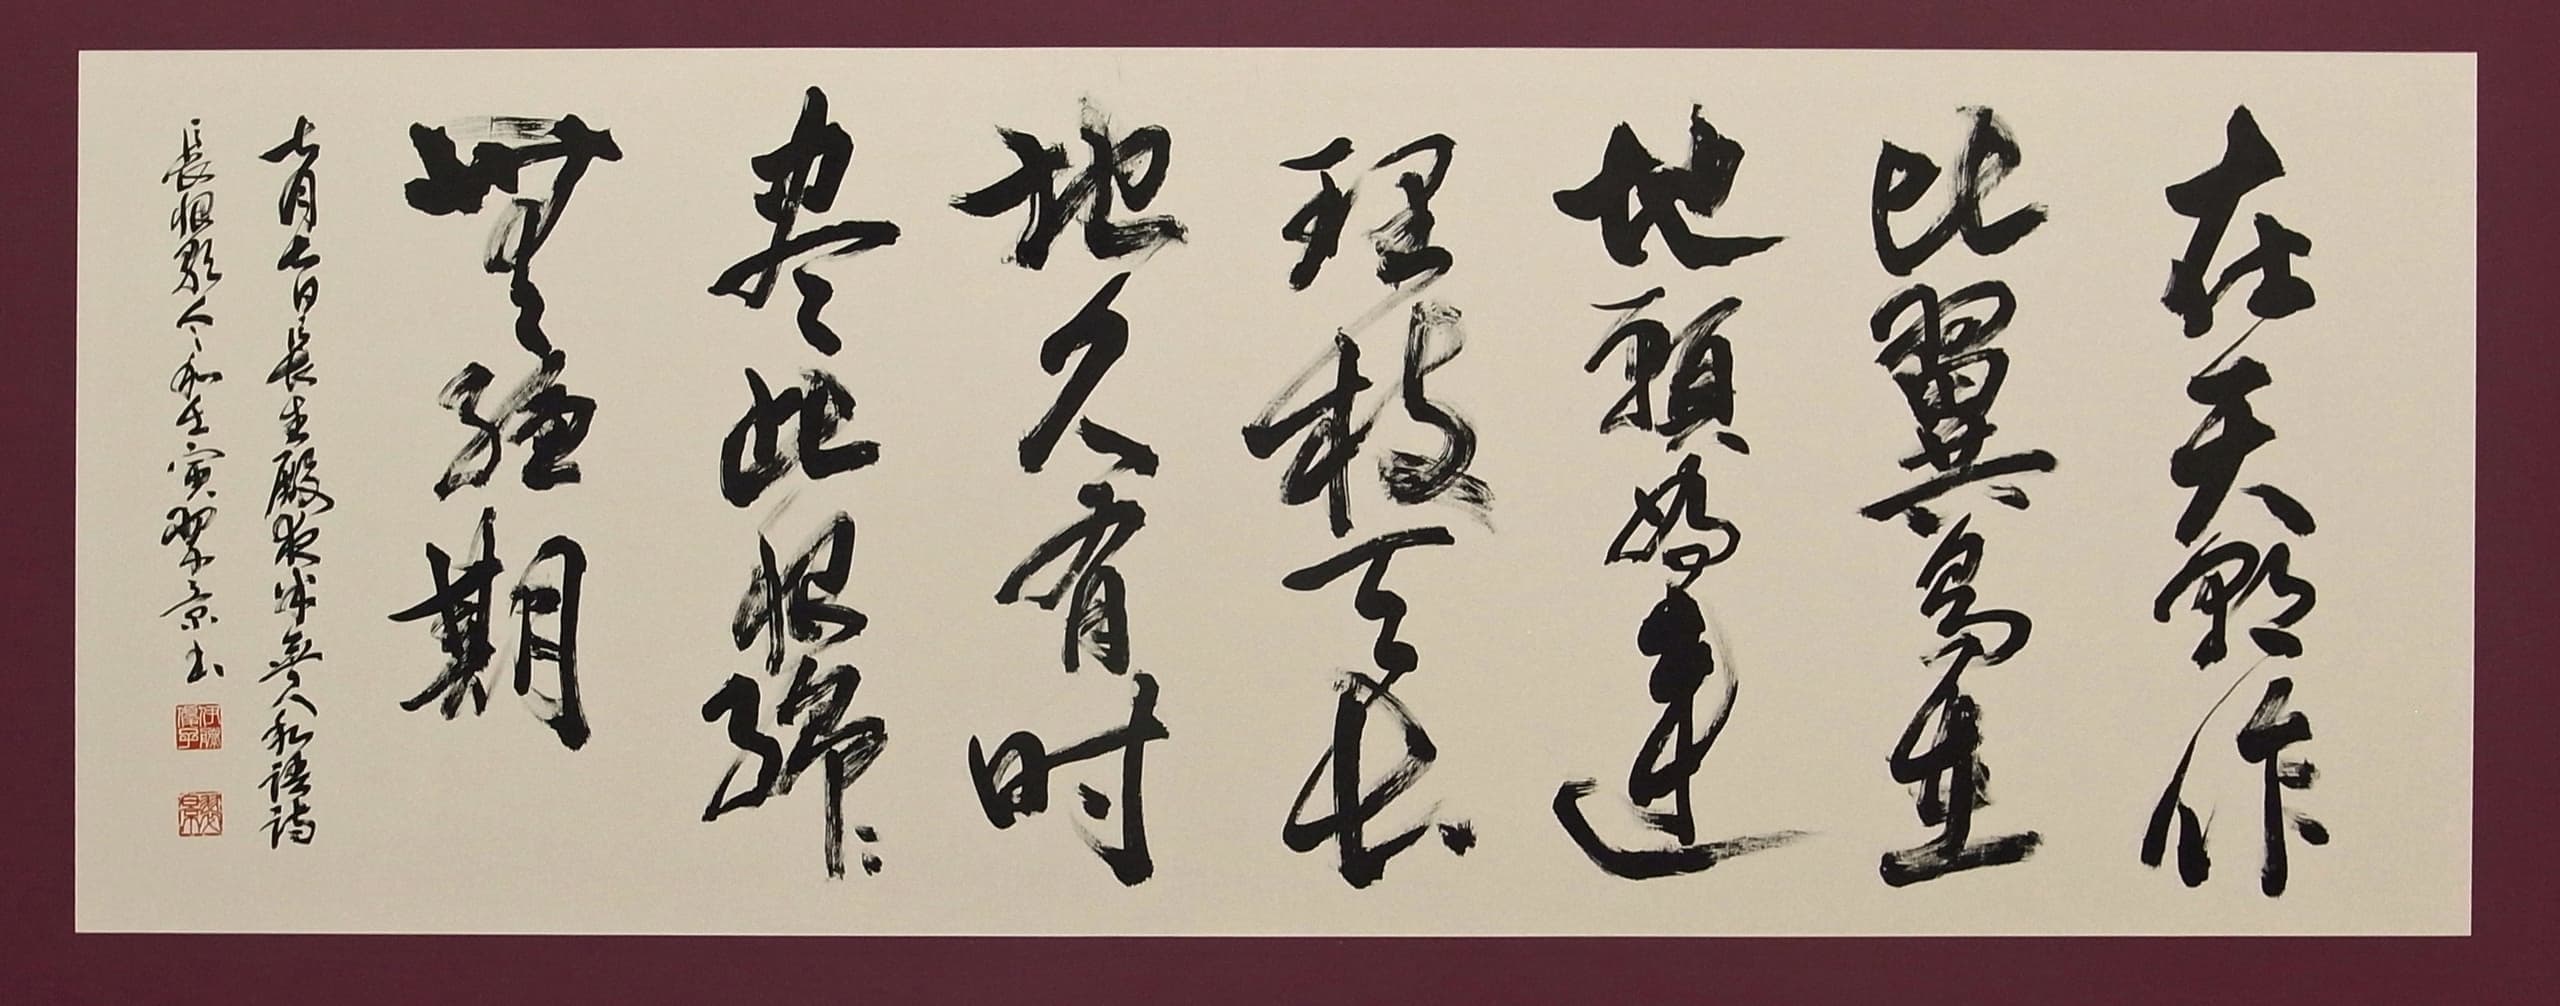 在天願作
比翼鳥在
地願為連
理枝天長
地久有时
尽此恨綿々
無絶期
七月七日長生殿夜半無人私語時
長恨歌 令和壬寅 翠景書
翠景